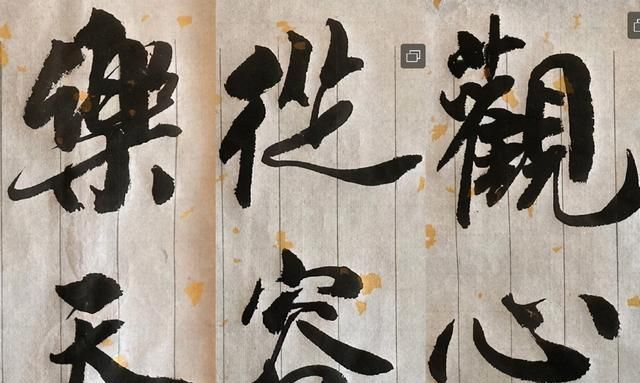 觀心
從容
樂天